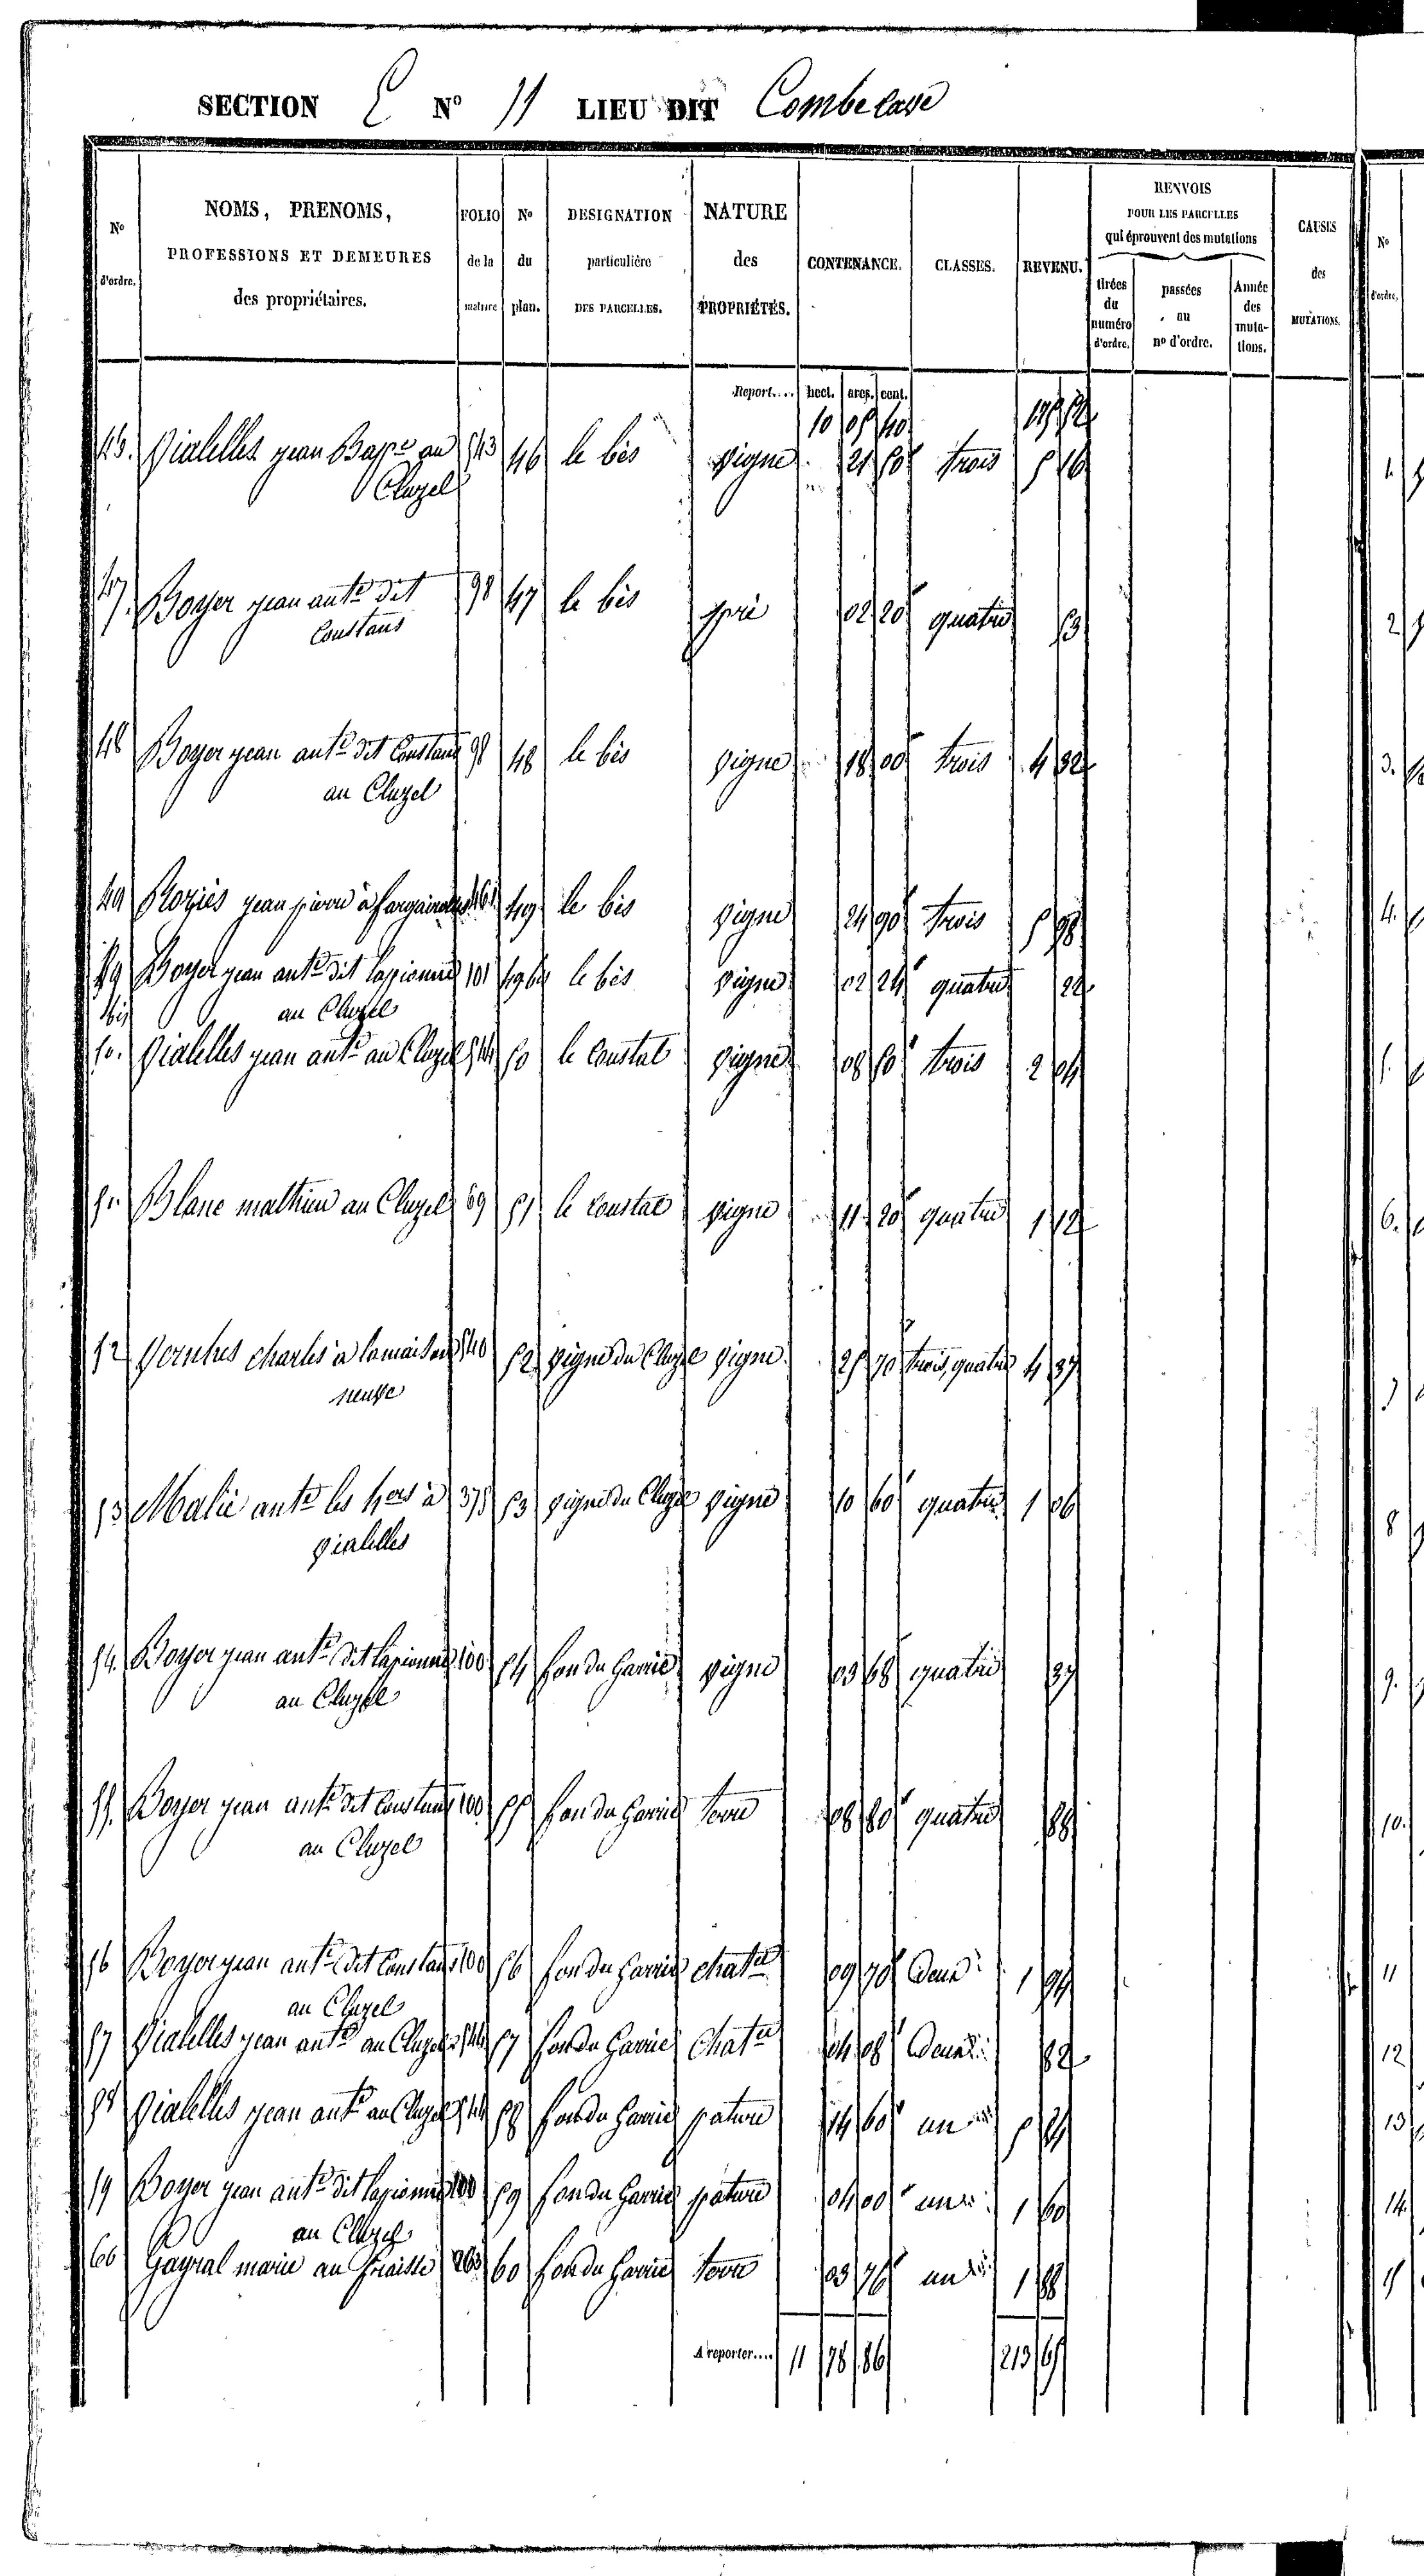 SECTION E N° 11 LIEU DIT Combecave
N° d'ordre. NOMS, PRENOMS, PROFESSIONS ET DEMEURES des propriétaires. FOLIO de la matrice N° du plan. DESIGNATION particulière DES PARCELLES. NATURE des PROPRIÉTÉS. CONTENANCE. CLASSES. REVENU. RENVOIS POUR LES PARCELLES qui éprouvent des mutations tirées du numéro d'ordre. passées au n° d'ordre. Année des mutations. CAUSES des MUTATIONS.
Report.... hect. ares. cent.
10 05 40
Vialelles jean Bapte au 543 46 le bès vigne 21 50 trois 5 16
Cluzel
47. Boyer jean ante dit 98 47 le bès pré 02 20 quatre 53
Constans
48 Boyer jean ante dit Constans 98 48 le bès vigne 18 00 trois 4 32
au Cluzel
49 Roziès jean pierre à 49 le bès vigne 24 90 trois 5 98
49 Boyer jean ante dit 101 49 bis le bès vigne 02 24 quatre 22
bis au Cluzel
50. Vialelles jean ante au Cluzel 544 50 le Coustal vigne 08 50 trois 2 04
51 Blanc mathieu au Cluzel 69 51 le Coustal vigne 11 20 quatre 1 12
52 charles à la maison 540 52 vigne du Cluzel vigne 25 70 trois, quatre 4 37
neuve
53 Malié ante les hers à 375 53 vigne du Cluzel vigne 10 60 quatre 1 06
vialelles
54. Boyer jean ante dit 100 54 fon du Garric vigne 03 68 quatre 37
au Cluzel
55. Boyer jean ante dit Constans 100 55 fon du Garric terre 08 80 quatre 88
au Cluzel
56 Boyer jean ante dit Constans 100 56 fon du Garric chater 09 70 deux 1 94
au Cluzel
57 Vialelles jean ante au Cluzel 544 57 fon du Garric chater 04 08 deux 82
58 Vialelles jean ante au Cluzel 544 58 fon du Garric pature 14 60 un 5 84
59 Boyer jean ante dit 100 59 fon du Garric pature 04 00 une 1 60
au Cluzel
60 Gayral marie au Fraisse 263 60 fon du Garric terre 03 76 un 1 88
A reporter.... 11 78 86 213 65
N° d'ordre.
1.
2
3.
4.
5.
6.
7
8
9.
10.
11
12
13
14
15